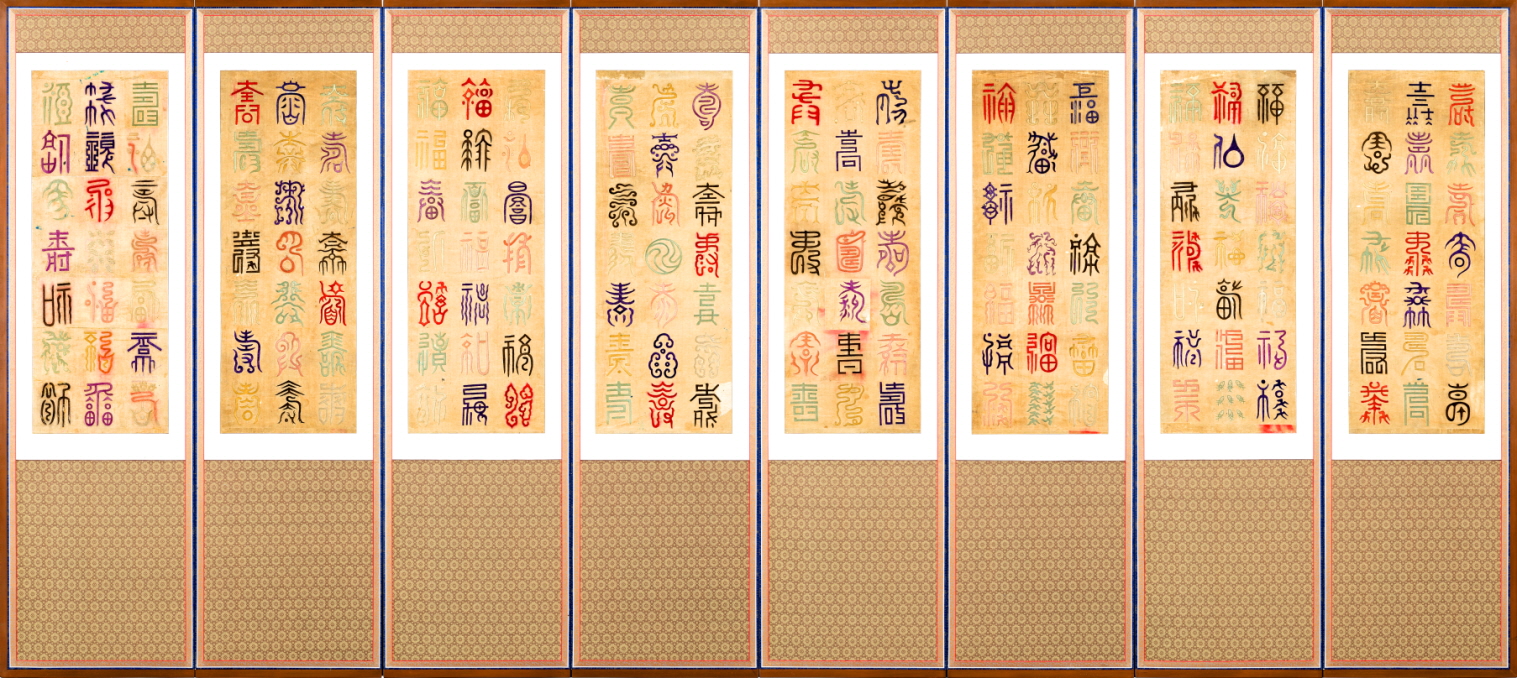 壽壽壽壽壽壽壽
壽壽壽壽壽壽壽
壽壽壽壽壽壽壽
福福福福福福福
福福福福福福福
福福福福福福福
福福福福福福福
福福福福福福福
福福福福福福福
壽壽壽壽壽壽壽
壽壽壽壽壽壽壽
壽壽壽壽壽壽壽
壽壽壽壽壽壽壽
壽壽壽壽壽壽壽
壽壽壽壽壽壽壽
福福福福福福福
福福福福福福福
福福福福福福福
壽壽壽壽壽壽壽
壽壽壽壽壽壽壽
壽壽壽壽壽壽壽
壽福壽壽福壽壽
福福福福福
福福壽福福福